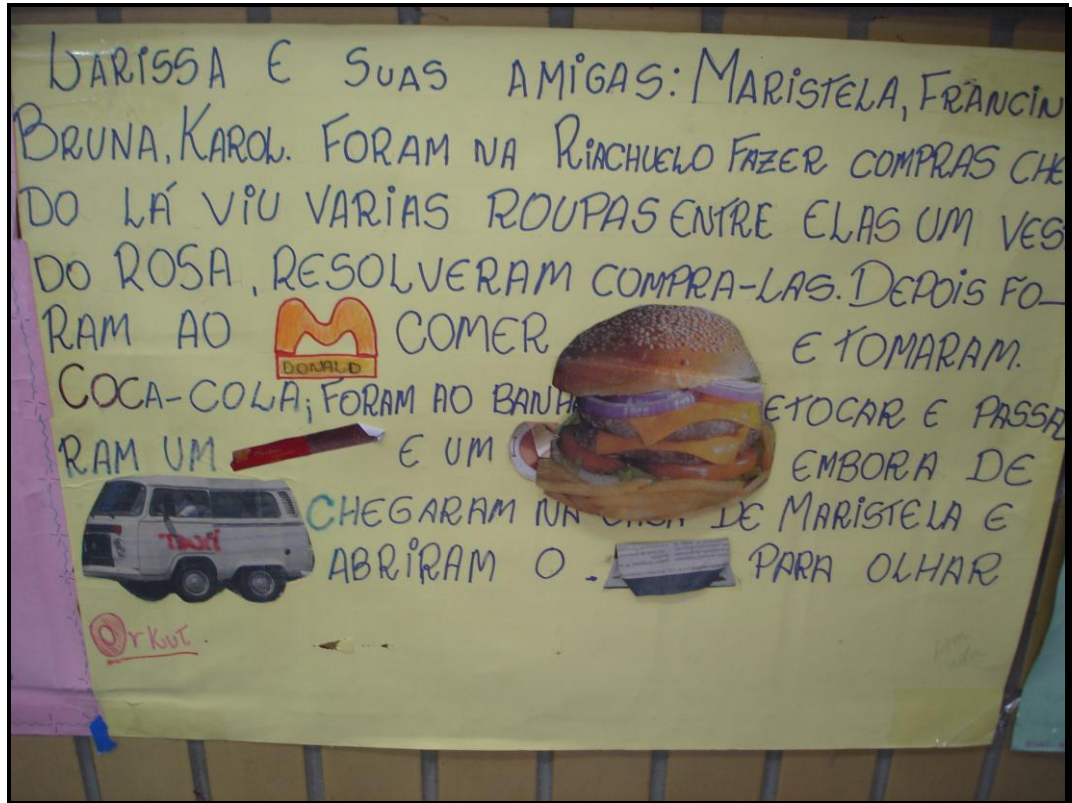 LARISSA E SUAS AMIGAS: MARISTELA, FRANCIN
BRUNA, KAROL. FORAM NA RIACHUELO FAZER COMPRAS CHE
DO LÁ VIU VARIAS ROUPAS ENTRE ELAS UM VES
DO ROSA, RESOLVERAM COMPRA-LAS. DEPOIS FO-
RAM AO M DONALD COMER E TOMARAM.
COCA-COLA; FORAM AO BANH ETOCAR E PASSA
RAM UM E UM EMBORA DE
TAXI CHEGARAM NA CASA DE MARISTELA E
ABRIRAM O PARA OLHAR
Orkut.